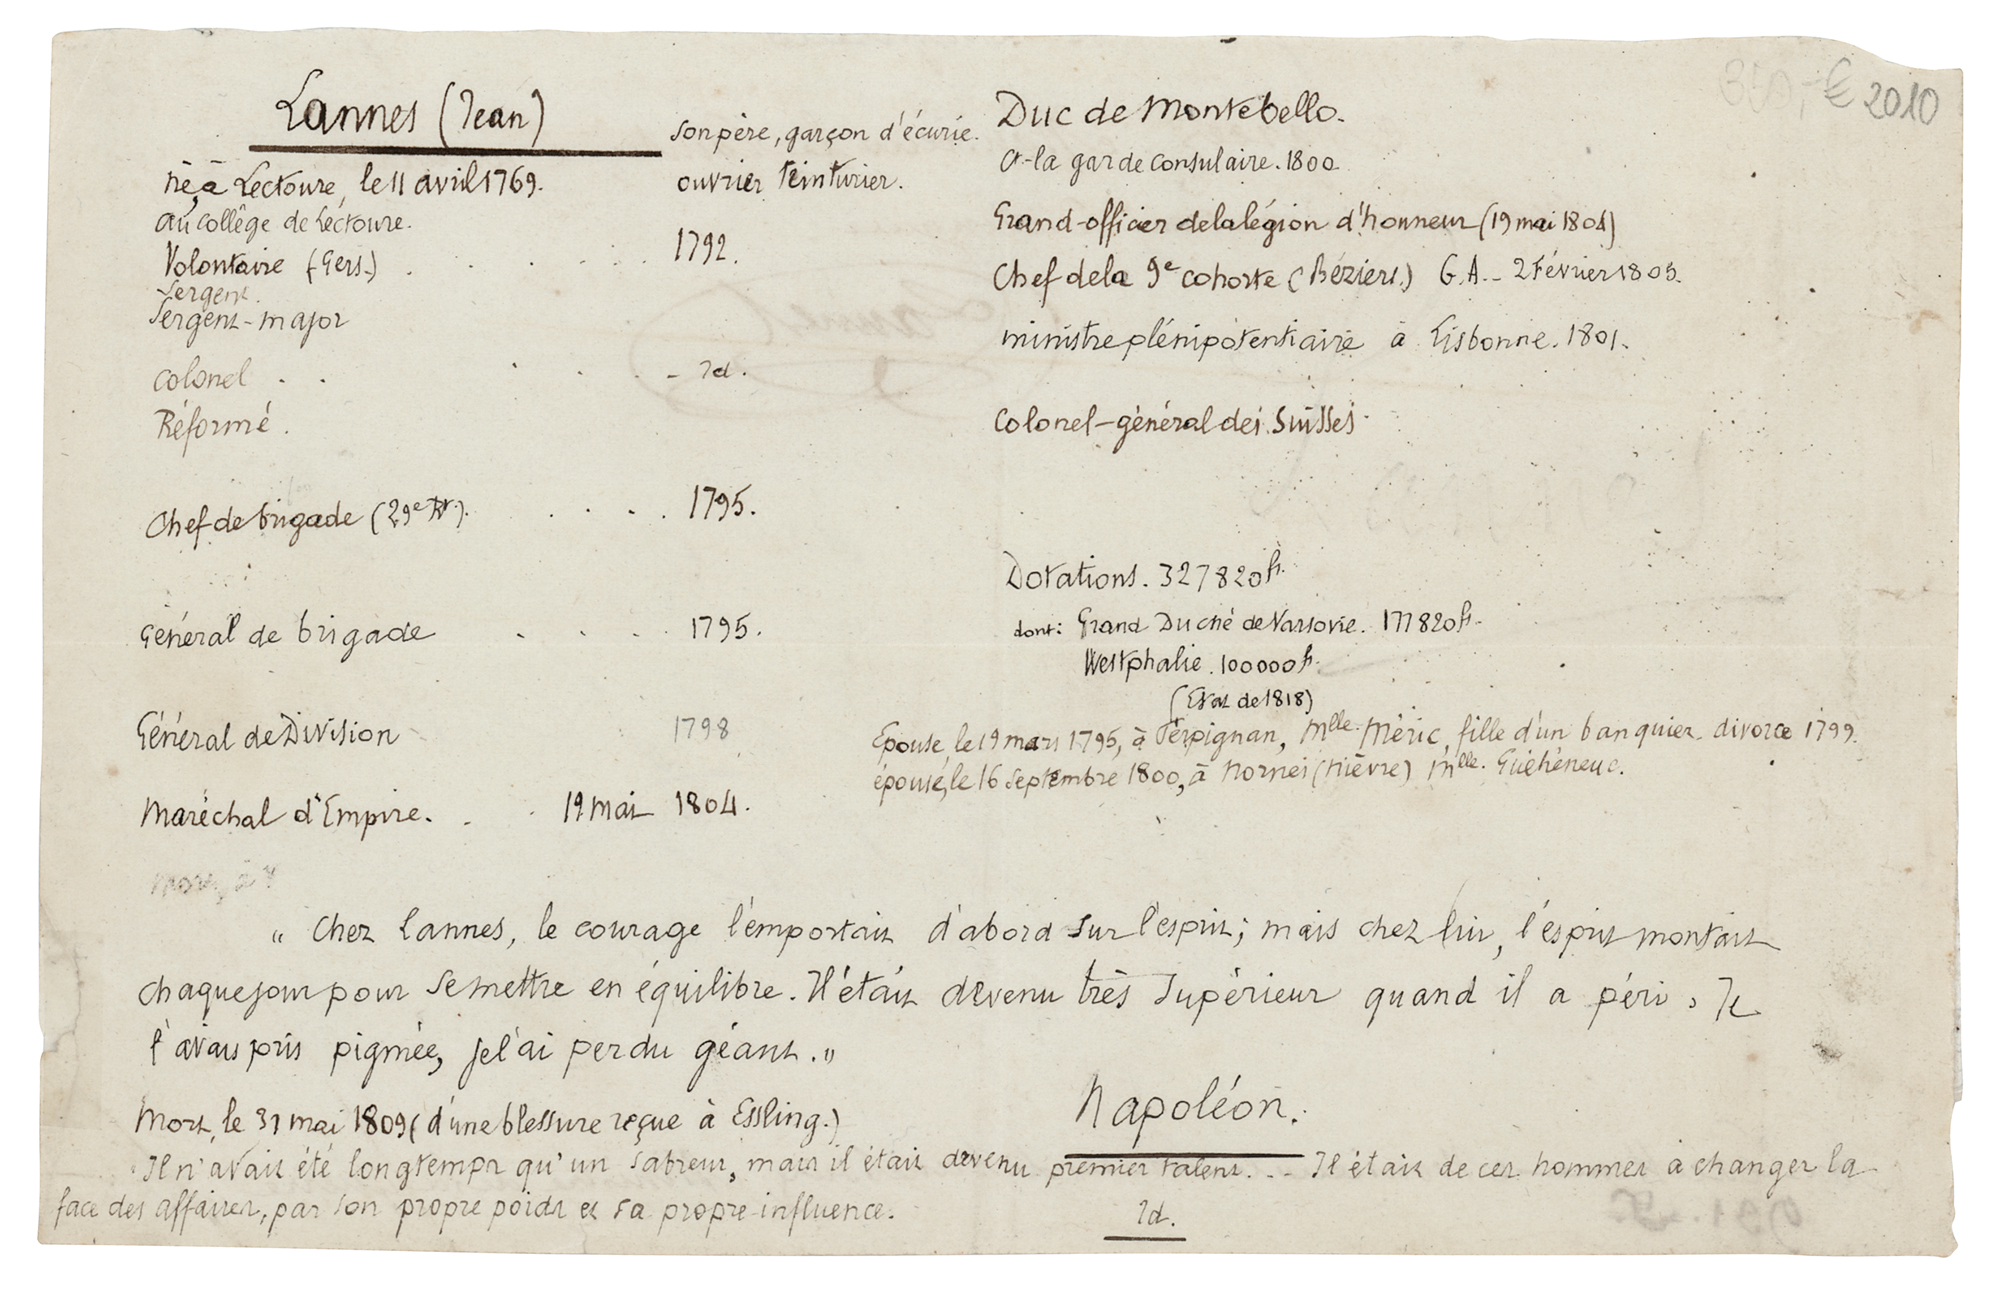 Lannes (Jean)
son père, garçon d'écurie.
ouvrier teinturier.
né, à Lectoure, le 11 avril 1769.
au collège de Lectoure.
Volontaire (Gers.) . . . . . 1792.
Sergent.
Sergent-major
Colonel . . . . . - Id.
Réformé.
Chef de brigade (29e .). . . . . 1795.
Général de brigade . . . . 1795.
Général de Division 1798
Maréchal d'Empire. . . 19 mai 1804.
Mort, à
Duc de Montebello.
à la garde consulaire. 1800
Grand-officier de la légion d'honneur (19 mai 1804)
Chef de la 9e cohorte (Béziers.) G.A. - 2 Février 1805.
ministre plénipotentiaire à Lisbonne. 1801.
Colonel-général des Suisses.
Dotations. 327820 fr.
dont: Grand Duché de Varsovie. 177820 fr.
Westphalie. 100000 fr.
(Etat de 1818)
Epouse, le 19 mars 1795, à Perpignan, Mlle. Méric, fille d'un banquier. divorce 1799.
épouse, le 16 Septembre 1800, à Dornes (Nièvre) Mlle. Guéhéneuc.
" Chez Lannes, le courage l'emportait d'abord sur l'esprit; mais chez lui, l'esprit montait
chaque jour pour se mettre en équilibre. Il était devenu très supérieur quand il a péri. Je
l'avais pris pigmée, je l'ai perdu géant. "
Napoléon.
Mort, le 31 mai 1809 (d'une blessure reçue à Essling.)
Il n'avait été longtemps qu'un sabreur, mais il était devenu premier talent. . . - Il était de ces hommes à changer la
face des affaires, par son propre poids et sa propre influence.
Id.
350,- € 2010